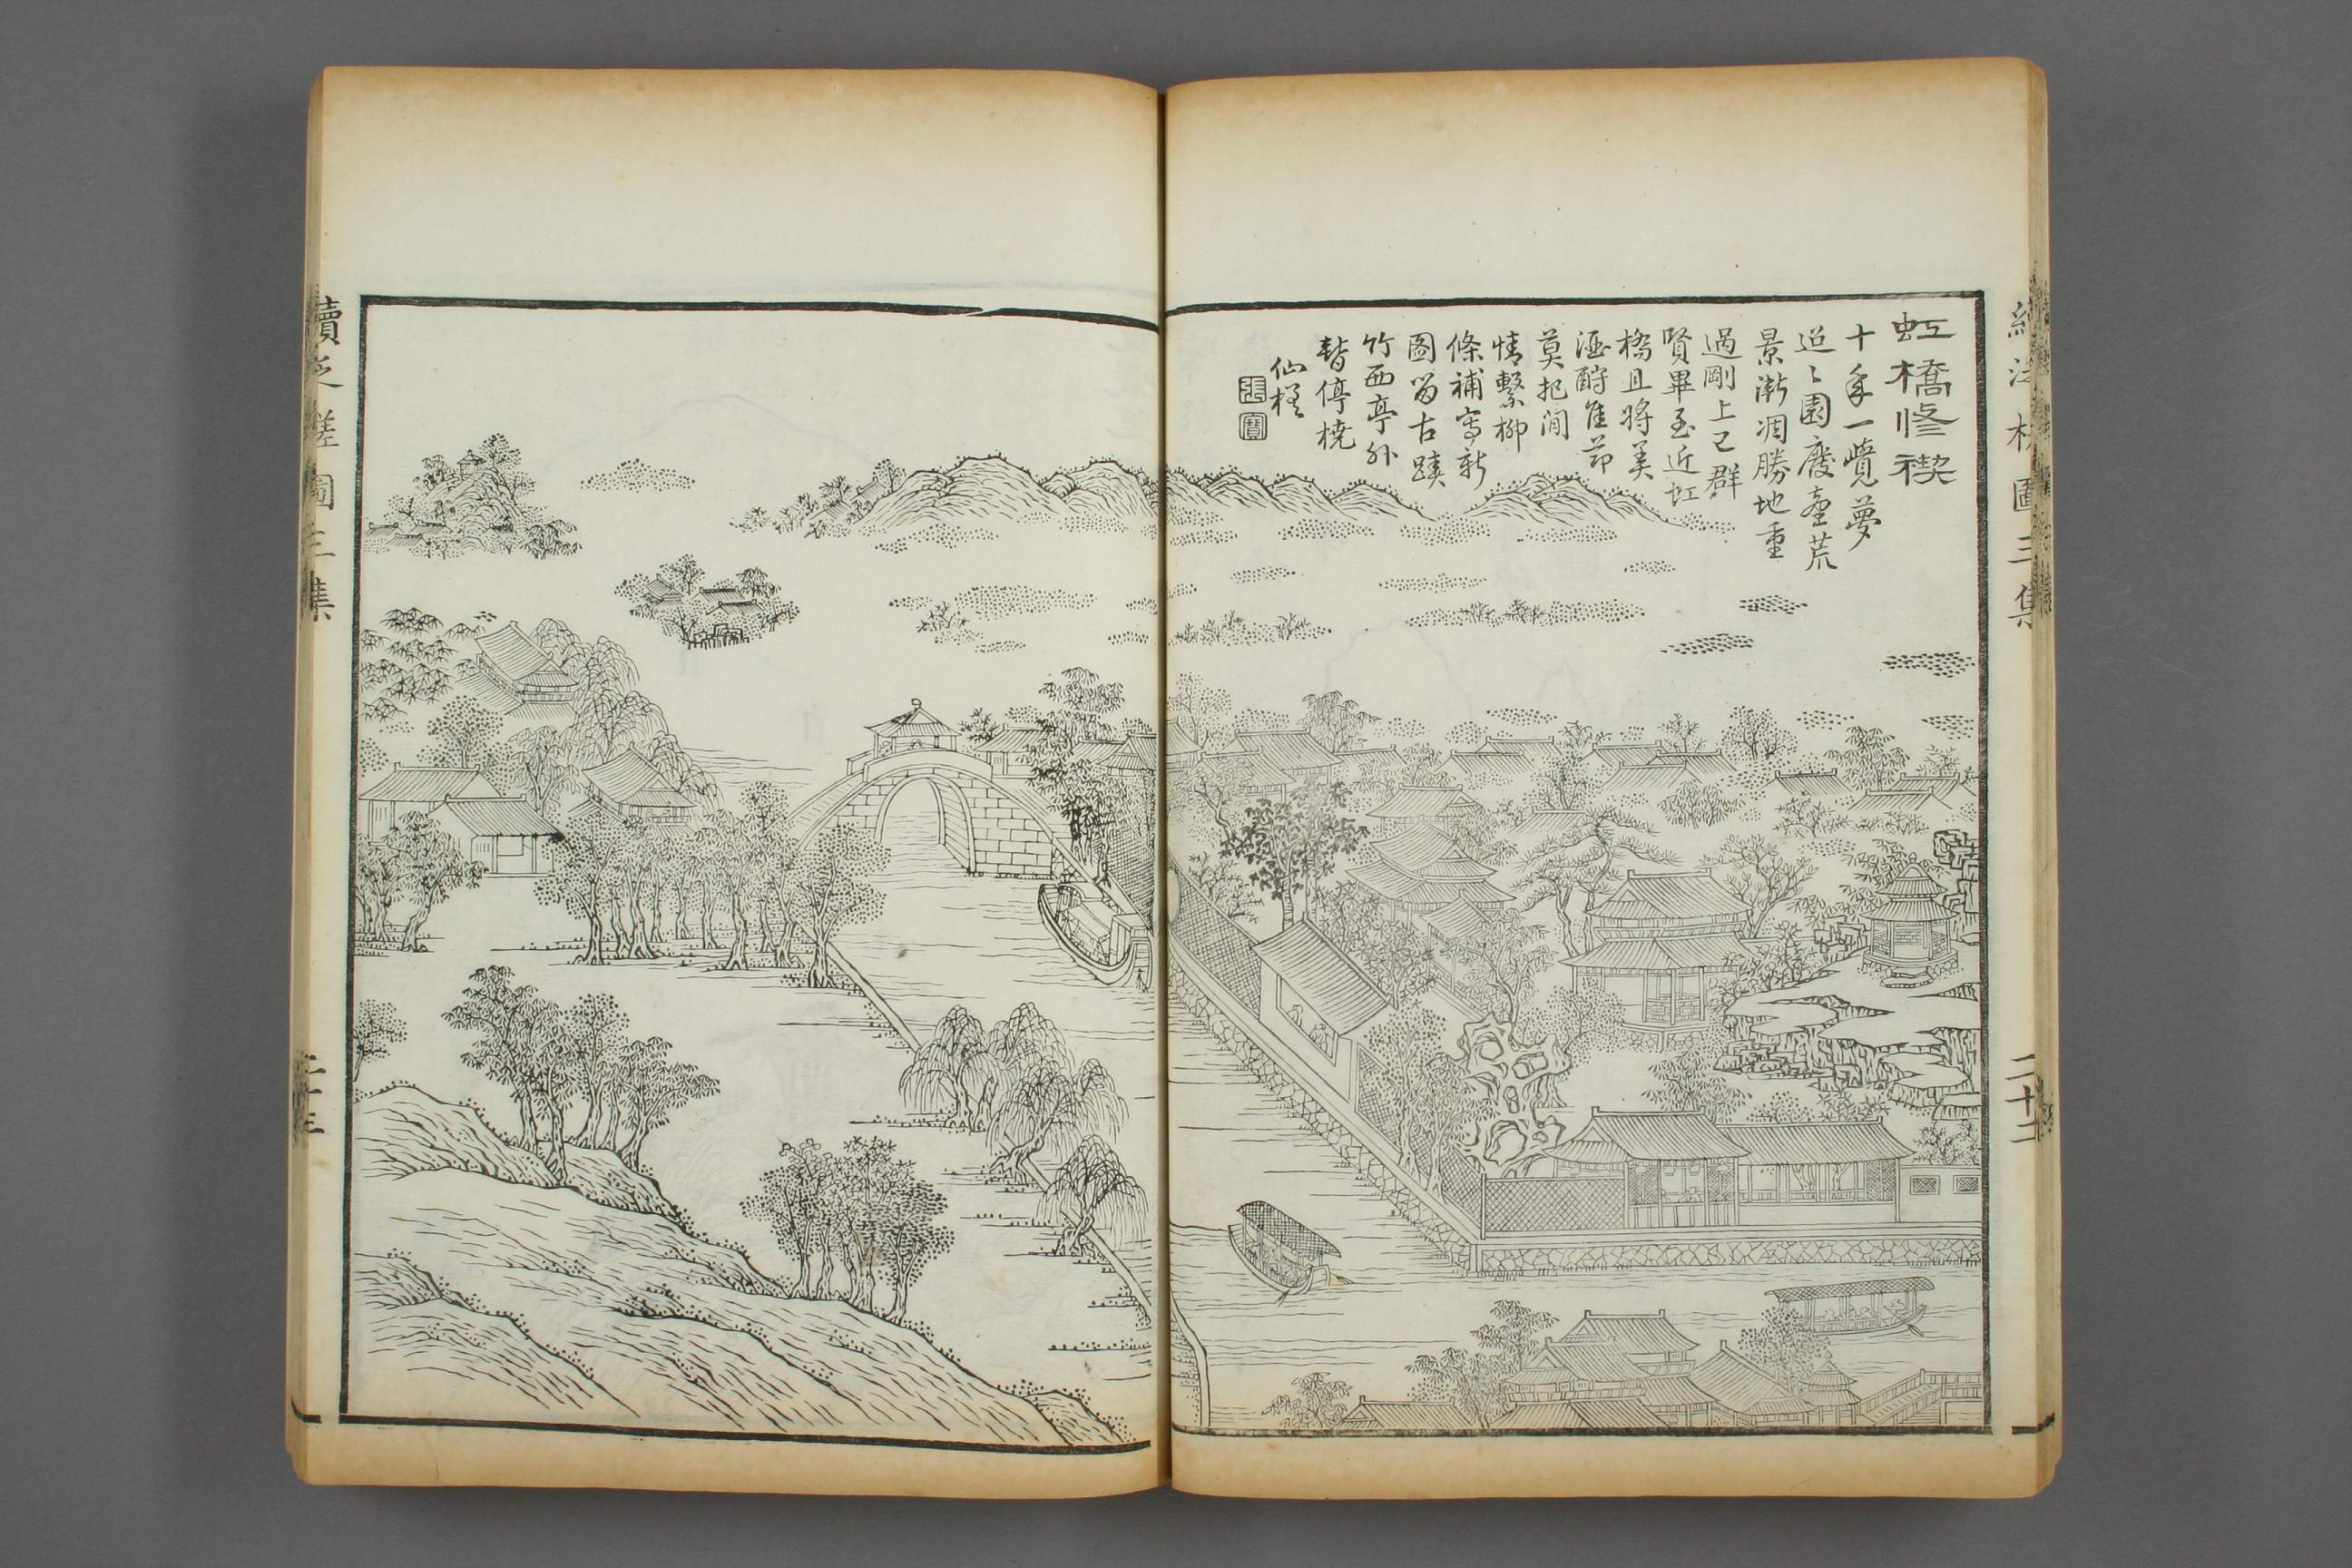 虹橋修禊
十年一覺夢
迢〻園廢臺荒
景漸凋勝地重
過剛上巳群
賢畢至近虹
橋且將美
酒酧佳節
莫把閒
情繫柳
條補寫新
圖留古蹟
竹西亭外
暫停橈
仙槎
張寶
續泛槎圖三集
二十二
續泛槎圖三集